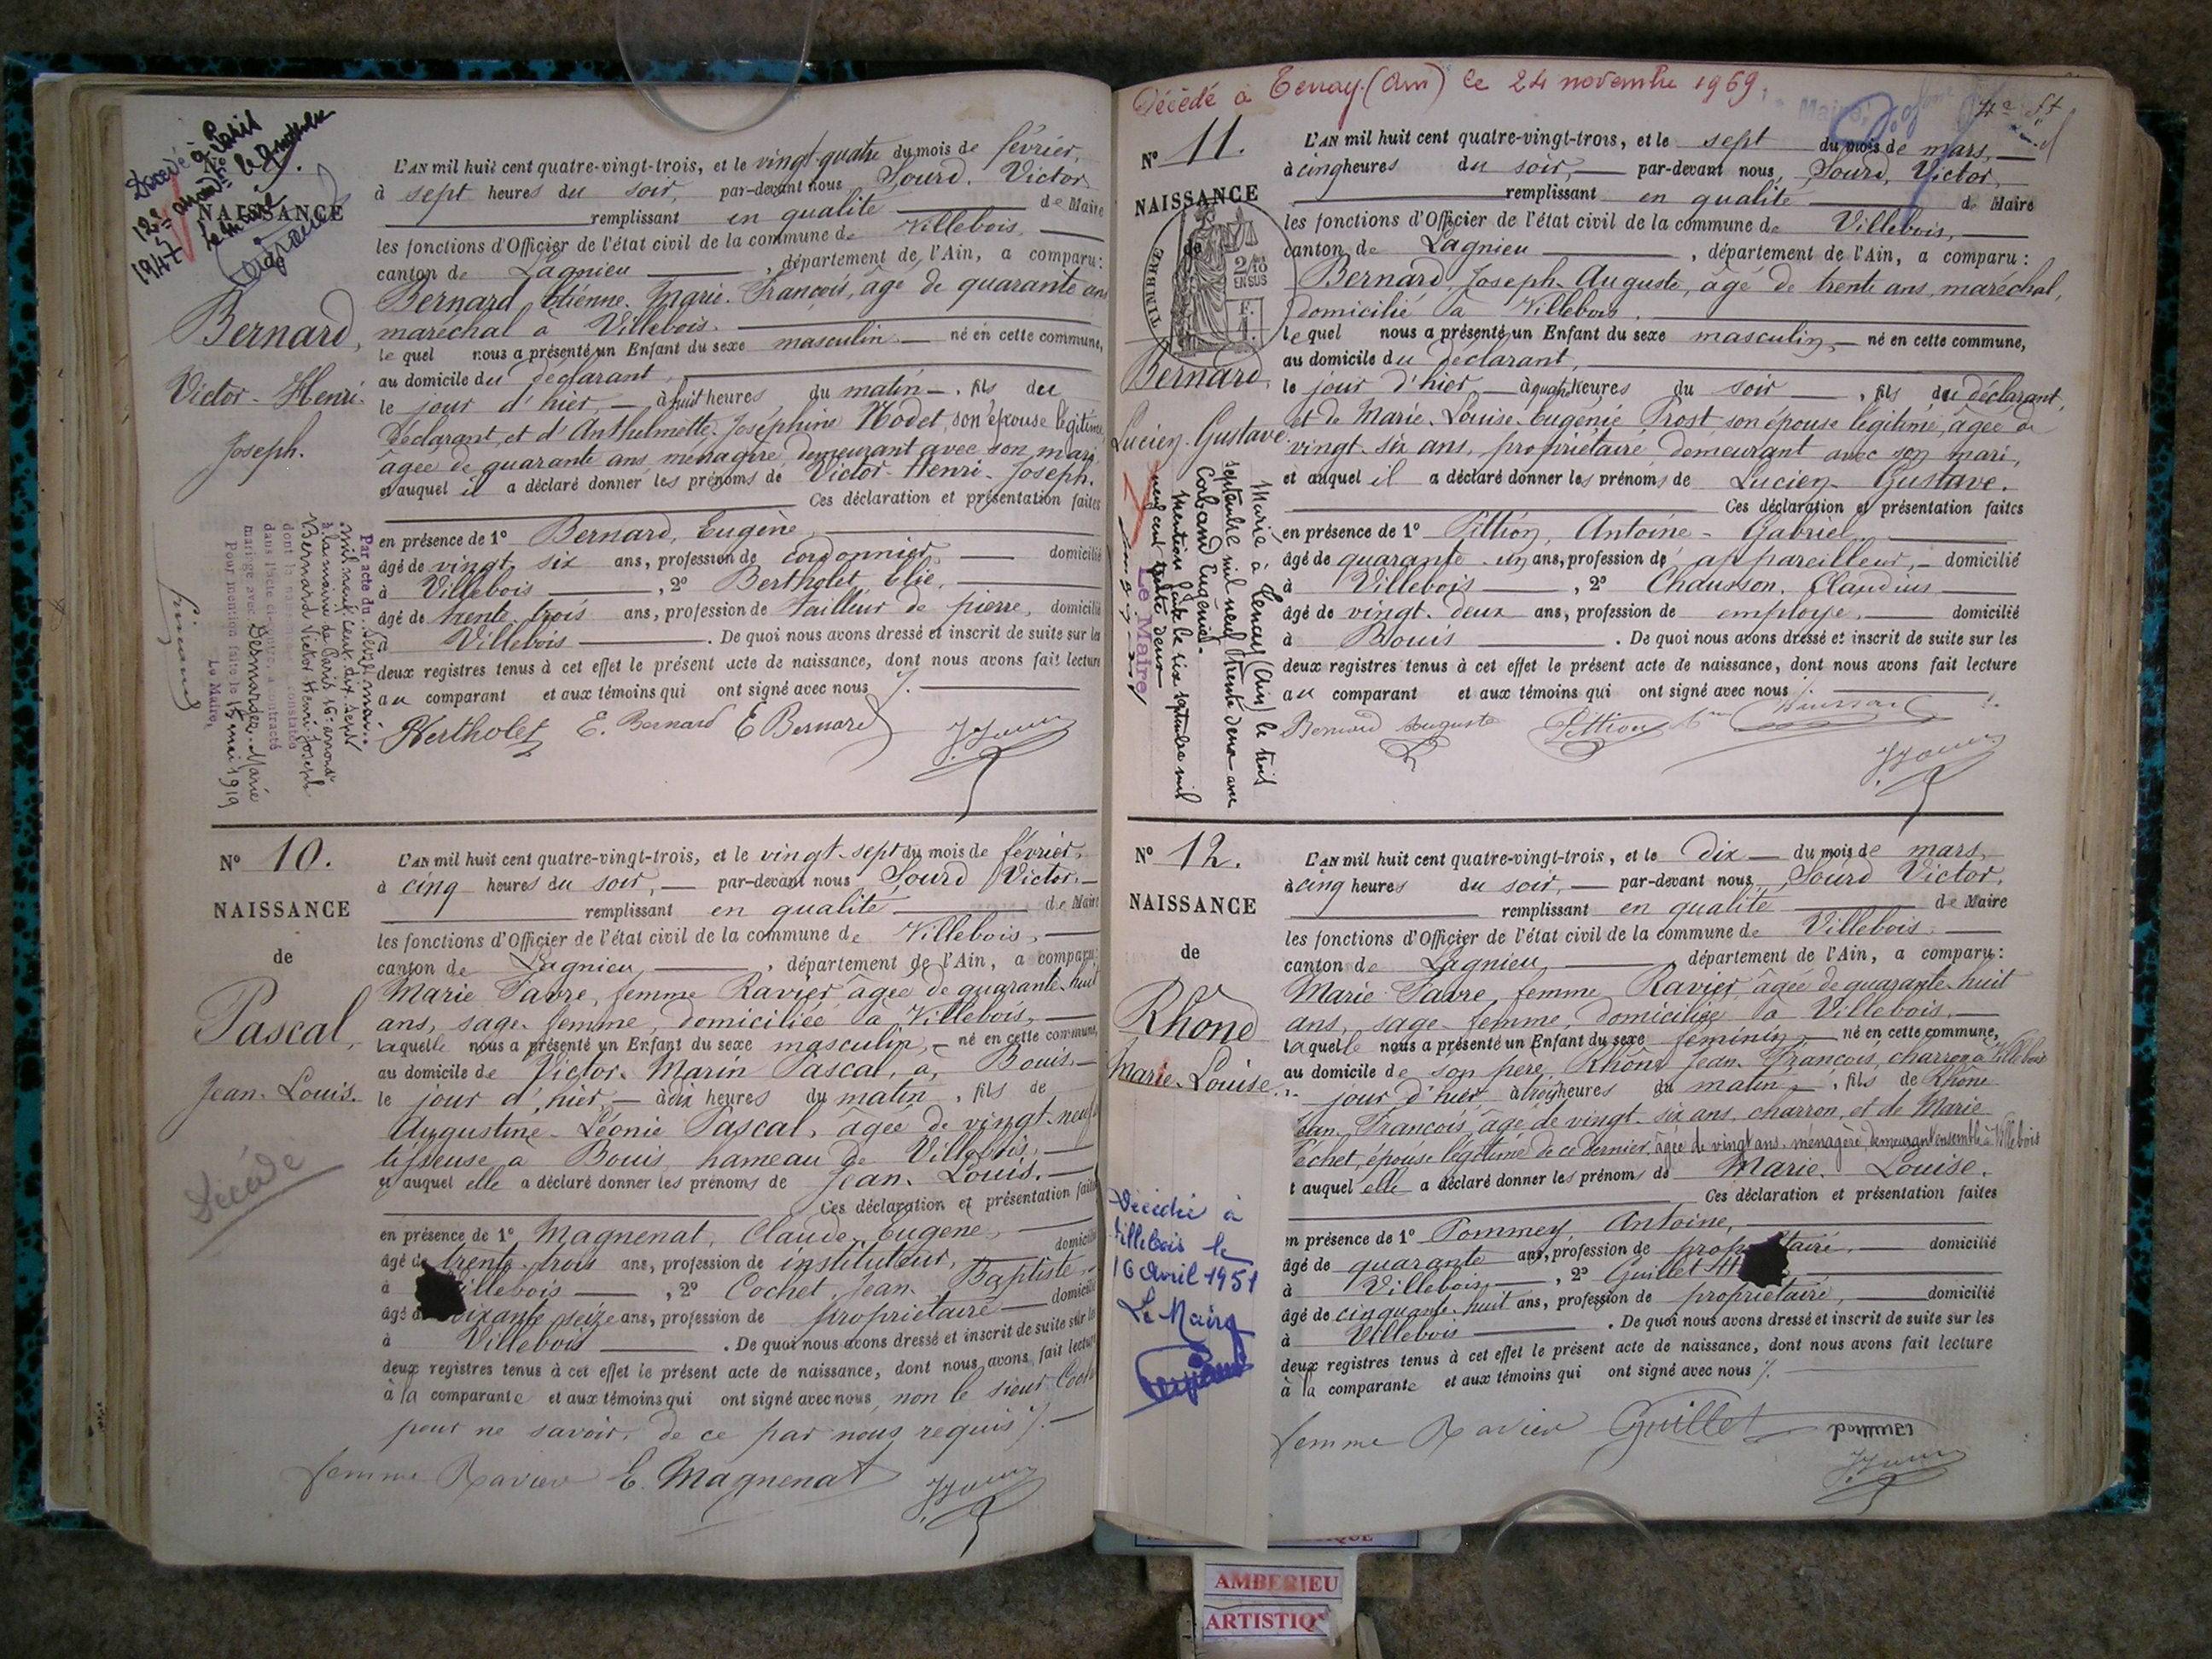 Décédé à Paris
12e arrondt le 9
1947
le maire
NAISSANCE
de
Bernard,
Victor-Henri-
Joseph.
L'AN mil huit cent quatre-vingt-trois, et le vingt-quatre du mois de février,
à sept heures du soir, par-devant nous Sourd, Victor
remplissant en qualité de Maire
les fonctions d'Officier de l'état civil de la commune de Villebois,
canton de Lagnieu, département de l'Ain, a comparu:
Bernard Etienne-Marie-François, âgé de quarante ans
maréchal à Villebois.
lequel nous a présenté un Enfant du sexe masculin né en cette commune,
au domicile du déclarant,
le jour d'hier, à huit heures du matin, fils du
déclarant, et d'Anthelmette-Joséphine Hodet, son épouse légitime,
âgée de quarante ans ménagère demeurant avec son mari,
et auquel il a déclaré donner les prénoms de Victor-Henri-Joseph.
Ces déclaration et présentation faites
en présence de 1° Bernard, Eugène,
âgé de vingt six ans, profession de cordonnier, domicilié
à Villebois, 2° Bertholet, Elie,
âgé de trente trois ans, profession de tailleur de pierre, domicilié
à Villebois. De quoi nous avons dressé et inscrit de suite sur les
deux registres tenus à cet effet le présent acte de naissance, dont nous avons fait lecture
au comparant et aux témoins qui ont signé avec nous ./.
Bertholet E. Bernard E Bernard
Par acte du seize mai
mil neuf cent dix sept
à la mairie de Paris 16e arrondt
Bernard Victor Henri Joseph
dont la naissance constatée
dans l'acte ci-contre, a contracté
mariage avec Desmarges, Marie
Pour mention faite le 15 mai 1919
Le Maire,
N° 10.
NAISSANCE
de
Pascal,
Jean-Louis.
Décédé
L'AN mil huit cent quatre-vingt-trois, et le vingt-sept du mois de février,
à cinq heures du soir, par-devant nous Sourd Victor,
remplissant en qualité de Maire
les fonctions d'Officier de l'état civil de la commune de Villebois,
canton de Lagnieu, département de l'Ain, a comparu:
Marie Favre, femme Ravier, âgée de quarante-huit
ans, sage-femme, domiciliée à Villebois,
laquelle nous a présenté un Enfant du sexe masculin, né en cette commune,
au domicile de Victor-Marin Pascal, à Bouis,
le jour d'hier, à dix heures du matin, fils de
Augustine-Léonie Pascal, âgée de vingt-neuf
tisseuse à Bouis, hameau de Villebois,
et auquel elle a déclaré donner les prénoms de Jean-Louis.
Ces déclaration et présentation faites
en présence de 1° Magnenat, Claude-Eugène,
âgé de trente-trois ans, profession de instituteur, domicilié
à Villebois, 2° Cochet, Jean-Baptiste,
âgé de soixante seize ans, profession de propriétaire domicilié
à Villebois. De quoi nous avons dressé et inscrit de suite sur les
deux registres tenus à cet effet le présent acte de naissance, dont nous avons fait lecture
à la comparante et aux témoins qui ont signé avec nous, non le sieur Cochet
pour ne savoir, de ce par nous requis ./.
femme Ravier E. Magnenat
Décédé à Tenay (Ain) le 24 novembre 1969.
N° 11.
NAISSANCE
de
TIMBRE
2/10
EN SUS
F.
1.
Bernard,
Lucien-Gustave.
L'AN mil huit cent quatre-vingt-trois, et le sept du mois de mars,
à cinq heures du soir, par-devant nous, Sourd, Victor,
remplissant en qualité de Maire
les fonctions d'Officier de l'état civil de la commune de Villebois,
canton de Lagnieu, département de l'Ain, a comparu:
Bernard, Joseph-Auguste, âgé de trente ans, maréchal,
domicilié à Villebois.
lequel nous a présenté un Enfant du sexe masculin, né en cette commune,
au domicile du déclarant,
le jour d'hier à quatre heures du soir, fils du déclarant,
et de Marie-Louise-Eugénie Prost son épouse légitime, âgée de
vingt-six ans, propriétaire demeurant avec son mari,
et auquel il a déclaré donner les prénoms de Lucien-Gustave.
Ces déclaration et présentation faites
en présence de 1° Pittion, Antoine-Gabriel,
âgé de quarante-un ans, profession de appareilleur, domicilié
à Villebois, 2° Chausson, Claudius
âgé de vingt-deux ans, profession de employé, domicilié
à Bouis. De quoi nous avons dressé et inscrit de suite sur les
deux registres tenus à cet effet le présent acte de naissance, dont nous avons fait lecture
au comparant et aux témoins qui ont signé avec nous ./.
Bernard Auguste Pittion
Marié à Tenay (Ain) le trois
septembre mil neuf cent trente deux avec
Colband Eugénie.
Mention faite le six septembre mil
neuf cent trente deux
Le Maire,
N° 12.
NAISSANCE
de
Rhône
Marie-Louise.
Décédée à
Villebois le
16 avril 1951
Le Maire
L'AN mil huit cent quatre-vingt-trois, et le dix du mois de mars,
à cinq heures du soir, par-devant nous, Sourd Victor,
remplissant en qualité de Maire
les fonctions d'Officier de l'état civil de la commune de Villebois,
canton de Lagnieu, département de l'Ain, a comparu:
Marie Favre, femme Ravier, âgée de quarante-huit
ans, sage-femme, domiciliée à Villebois,
laquelle nous a présenté un Enfant du sexe féminin, né en cette commune,
au domicile de son père, Rhône Jean-François, charron à Villebois
jour d'hier, à trois heures du matin, fils de Rhône
Jean-François, âgé de vingt-six ans, charron, et de Marie
échet, épouse légitime de ce dernier, âgée de vingt ans, ménagère, demeurant ensemble à Villebois
t auquel elle a déclaré donner les prénoms de Marie-Louise.
Ces déclaration et présentation faites
en présence de 1° Pommey, Antoine,
âgé de quarante ans, profession de propriétaire, domicilié
à Villebois, 2° Guillet
âgé de cinquante-huit ans, profession de propriétaire, domicilié
à Villebois. De quoi nous avons dressé et inscrit de suite sur les
deux registres tenus à cet effet le présent acte de naissance, dont nous avons fait lecture
à la comparante et aux témoins qui ont signé avec nous ./.
femme Ravier Guillet pommey
AMBERIEU
ARTISTIQ